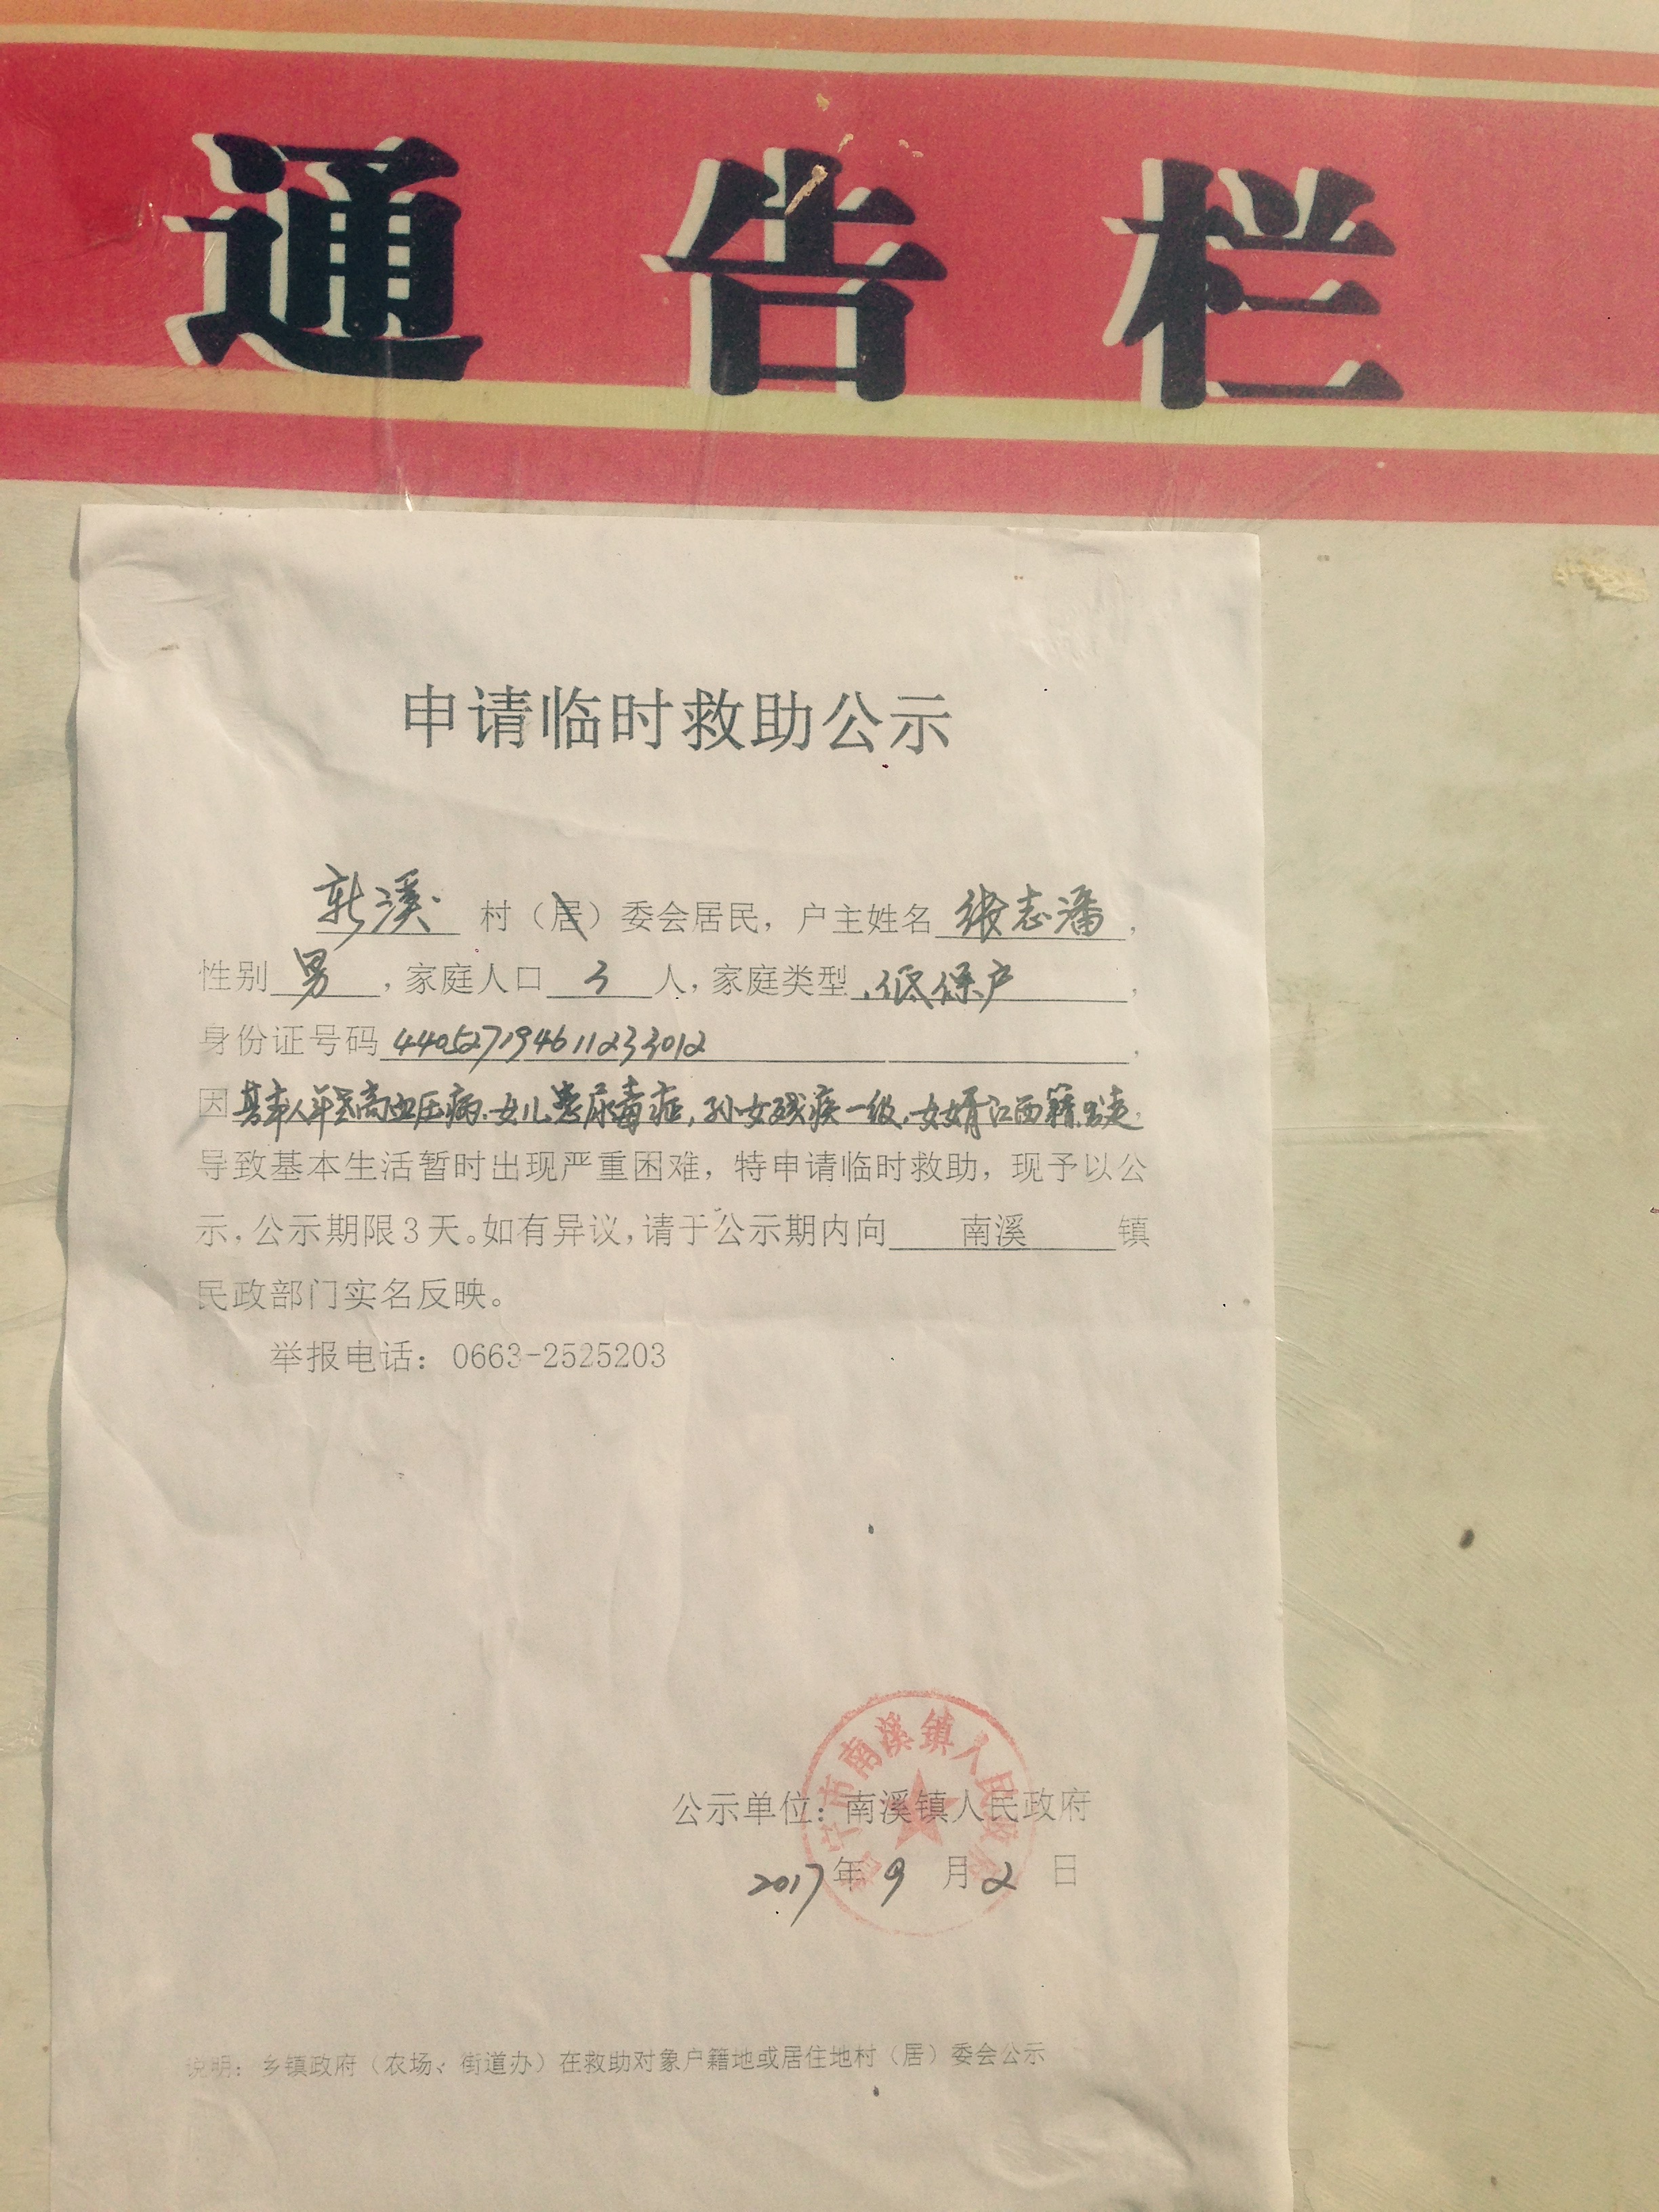 通告栏
申请临时救助公示
新溪 村（居）委会居民，户主姓名 张志潘，
性别 男 ，家庭人口 3 人，家庭类型 低保户 ，
身份证号码 440527194611233012 ，
因其本人年老高血压病，女儿患尿毒症，孙女残疾一级，女婿江西籍出走，
导致基本生活暂时出现严重困难，特申请临时救助，现予以公
示，公示期限3天。如有异议，请于公示期内向 南溪 镇
民政部门实名反映。
举报电话：0663-2525203
南溪镇人民政府
公示单位：南溪镇人民政府
2017年9月2日
说明：乡镇政府（农场、街道办）在救助对象户籍地或居住地村（居）委会公示